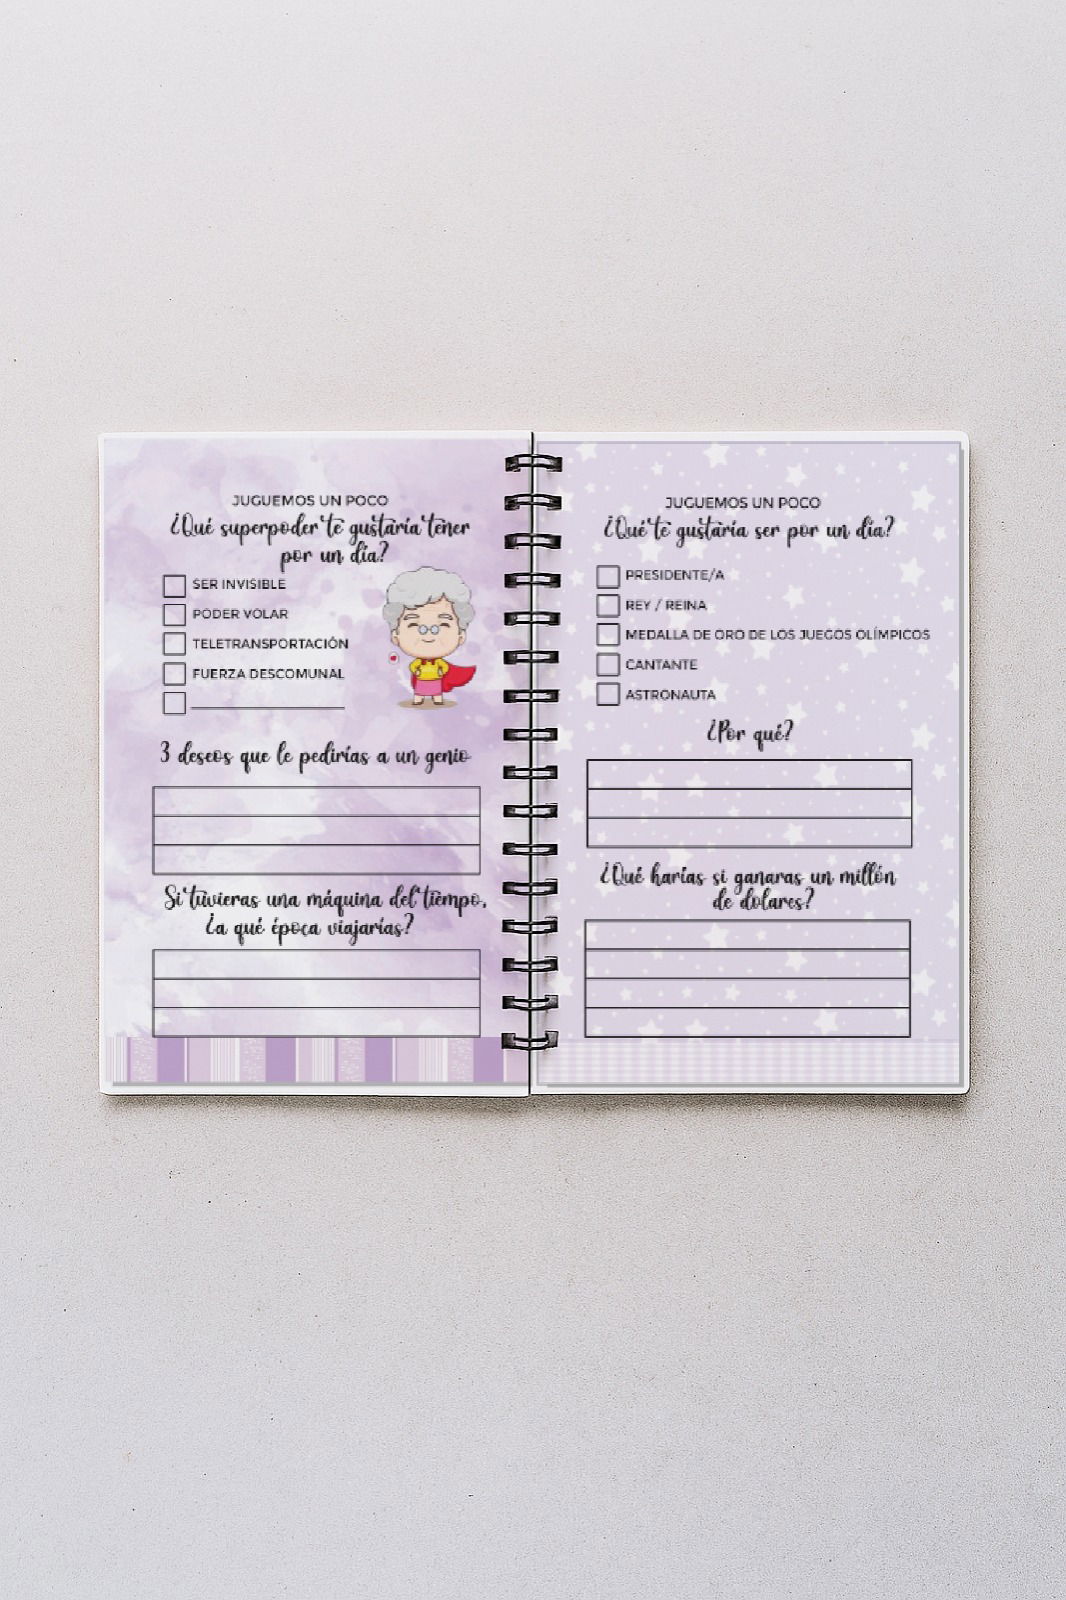 JUGUEMOS UN POCO
¿Qué superpoder te gustaría tener
por un día?
SER INVISIBLE
PODER VOLAR
TELETRANSPORTACIÓN
FUERZA DESCOMUNAL
3 deseos que le pedirías a un genio
Si tuvieras una máquina del tiempo,
¿a qué época viajarías?
JUGUEMOS UN POCO
¿Qué te gustaría ser por un día?
PRESIDENTE/A
REY / REINA
MEDALLA DE ORO DE LOS JUEGOS OLÍMPICOS
CANTANTE
ASTRONAUTA
¿Por qué?
¿Qué harías si ganaras un millón
de dolares?